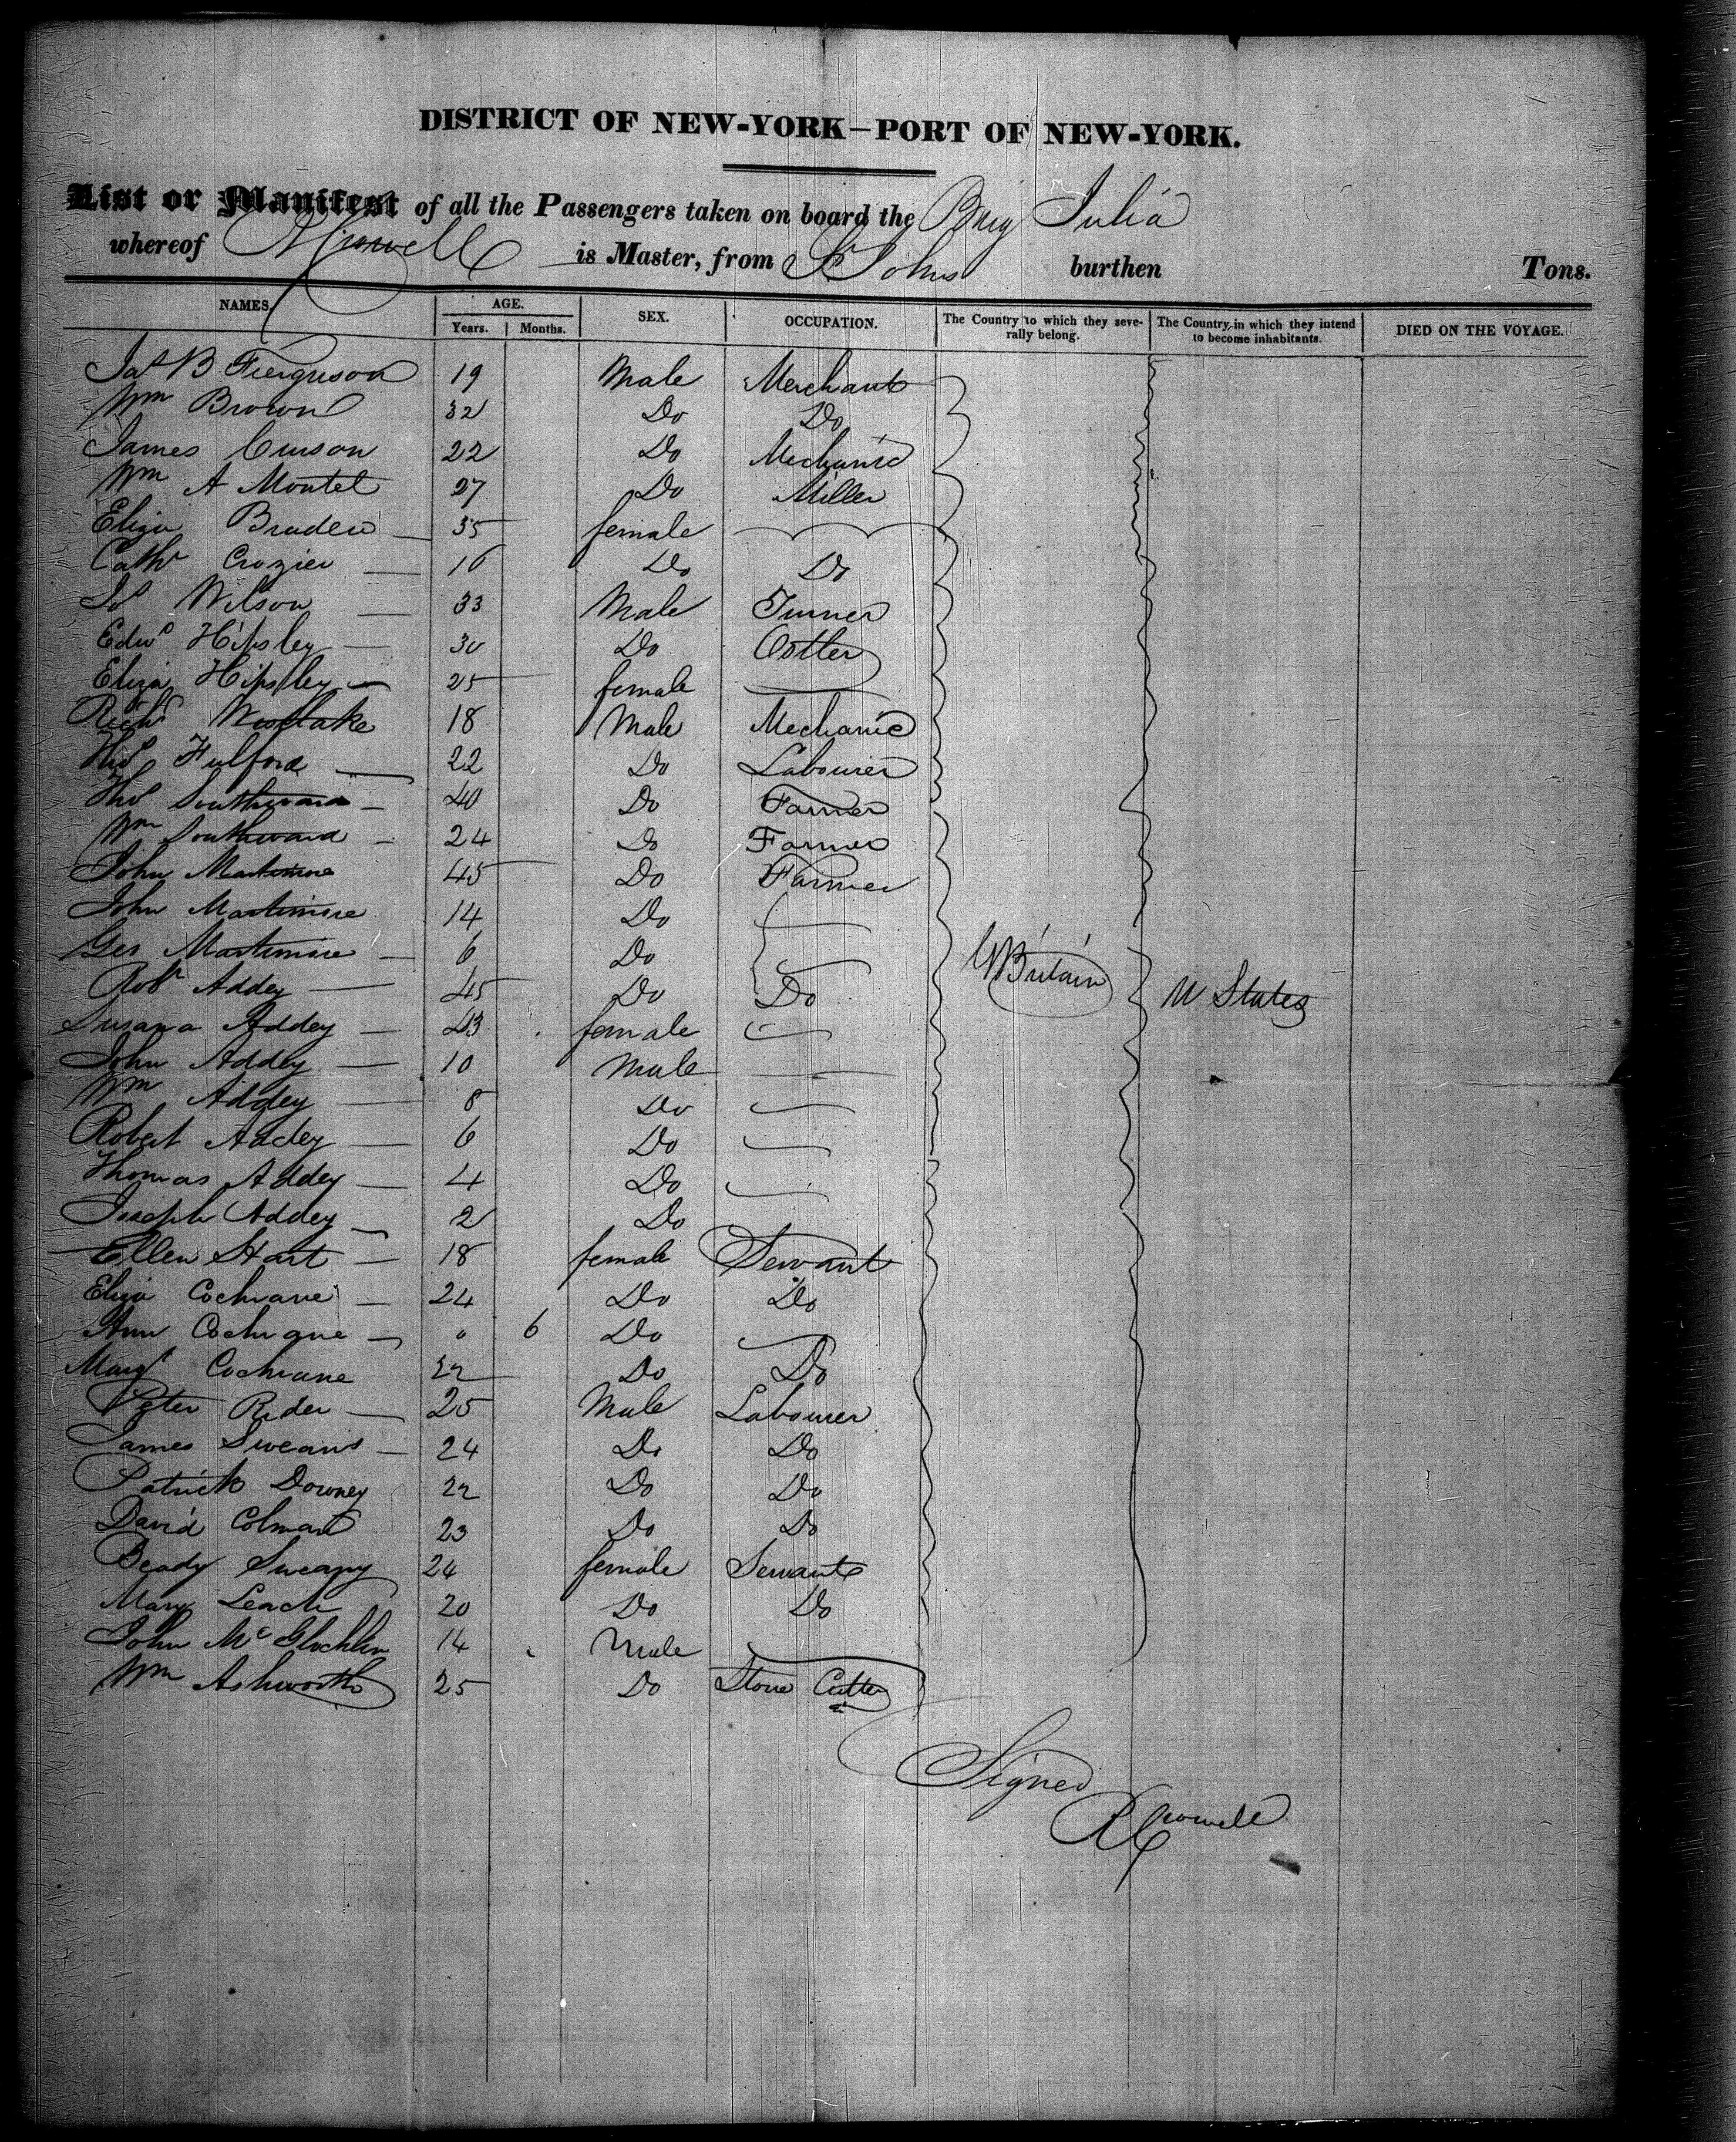 DISTRICT OF NEW-YORK—PORT OF NEW-YORK.
List or Manifest of all the Passengers taken on board the Brig Julia
whereof is Master, from St Johns burthen Tons.
NAMES. AGE. SEX. OCCUPATION. The Country to which they severally belong. The Country in which they intend to become inhabitants. DIED ON THE VOYAGE.
Years. Months.
Jas B Ferguson 19 Male Merchant
Wm Brown 32 Do Do
James 22 Do Mechanic
Wm A Montel 27 Do Miller
Eliza Braden 35 female
Cath Crozier 16 Do Do
Jos Wilson 33 Male Turner
Edwd Hipsley 30 Do Ostler
Eliza Hipsley 25 female
Richd Westlake 18 Male Mechanic
Thos Fulford 22 Do Labourer
Thos Southward 40 Do Farmer
Wm Southward 24 Do Farmer
John Martimore 45 Do Farmer
John Martimore 14 Do
Geo Martimore 6 Do
Robt Addey 45 Do Do G Britain U States
Susana Addey 43 female
John Addey 10 Male
Wm Addey 8 Do
Robert Addey 6 Do
Thomas Addey 4 Do
Joseph Addey 2 Do
Ellen Hart 18 female Servant
Eliza Cochrane 24 Do Do
Ann Cochrane 0 6 Do
Margt Cochrane 22 Do Do
Peter Rider 25 Male Labourer
James Sweany 24 Do Do
Patrick Downey 22 Do Do
David Colman 23 Do Do
Beady Sweany 24 female Servant
Mary Leach 20 Do Do
John McGlochlin 14 Male
Wm Ashworth 25 Do Stone Cutter
Signed
R Crowell